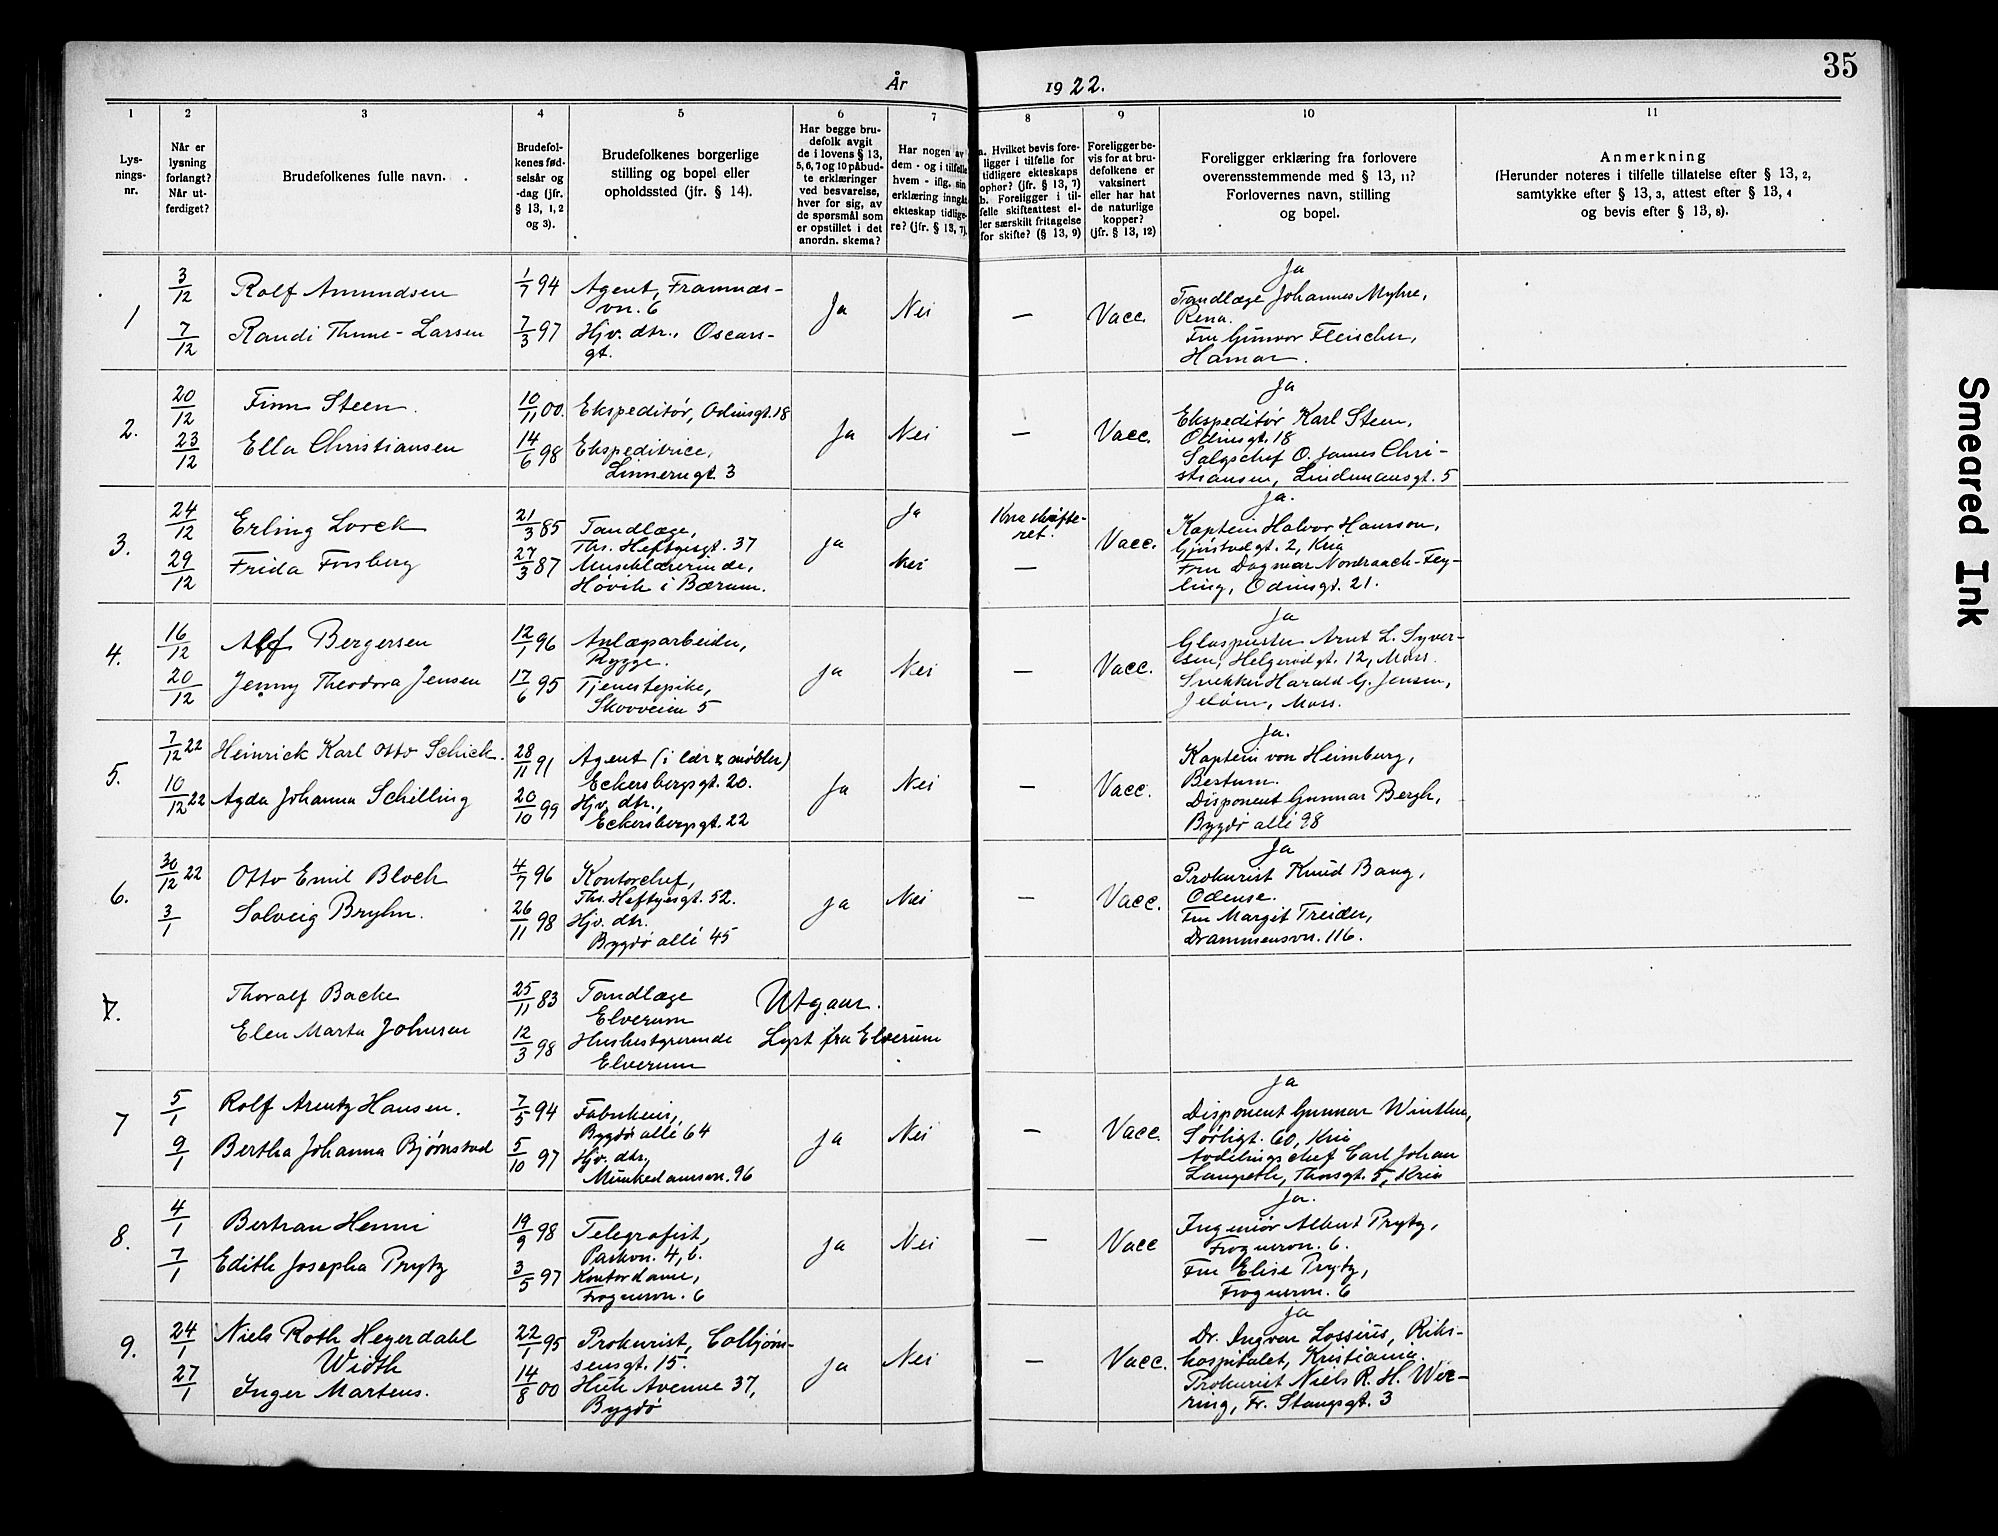 35
År 1922.
1 2 3 4 5 6 7 8 9 10 11
Lysningsnr.
Når er lysning forlangt? Når utferdiget?
Brudefolkenes fulle navn.
Brudefolkenes fødselsår og -dag (jfr. § 13, 1,2 og 3).
Brudefolkenes borgerlige stilling og bopel eller opholdssted (jfr. § 14).
Har begge brudefolk avgit de i lovens § 13, 5, 6, 7 og 10 påbudte erklæringer ved besvarelse, hver for sig, av de spørsmål som er opstillet i det anordn. skema?
Har nogen av dem - og i tilfelle hvem - iflg. sin erklæring inngått ekteskap tidligere? (jfr. § 13, 7).
a. Hvilket bevis foreligger i tilfelle for tidligere ekteskaps ophør? (jfr. § 13, 7) b. Foreligger i tilfelle skifteattest eller særskilt fritagelse for skifte? (§ 13, 9)
Foreligger bevis for at brudefolkene er vaksinert eller har hat de naturlige kopper? (jfr. § 13, 12)
Foreligger erklæring fra forlovere overensstemmende med § 13, 11? Forlovernes navn, stilling og bopel.
Anmerkning
(Herunder noteres i tilfelle tillatelse efter § 13, 2, samtykke efter § 13, 3, attest efter § 13, 4 og bevis efter § 13, 8).
1
3/12 Rolf Amundsen 1/7 94 Agent, Framnæs-
vn. 6
7/12 Randi Thune-Larsen 7/3 97 Hjv. dtr., Oscars-
gt.
Ja Nei — Vacc.
Ja
Tandlæge Johannes Myhre,
Rena.
Fru Gunvor Fleischer,
Hamar.
2.
20/12 Finn Steen. 10/11 00. Ekspeditør, Odinsgt. 18
23/12 Ella Christiansen 14/6 98 Ekspeditrice,
Linnerugt. 3
Ja Nei — Vacc.
Ja
Ekspeditør Karl Steen,
Odinsgt. 18
Salgschef O. James Chri-
stiansen, Lindemansgt. 5
3.
24/12 Erling Lorck 21/3 85 Tandlæge,
Ths. Heftyesgt. 37
29/12 Frida Forsberg 27/3 87 Musiklærerinde,
Høvik i Bærum.
Ja
Ja
Nei
Kria skifte-
ret.
—
Vacc.
Ja.
Kaptein Halvor Hansson,
gt. 2, Kria
Fru Dagmar Nordraach-Fey-
ling, Odinsgt. 21.
4.
16/12 Alf Bergersen 12/1 96 Anlægsarbeider,
Rygge.
20/12 Jenny Theodora Jensen 17/6 95 Tjenestepike,
Skovveien 5
Ja Nei — Vacc.
Ja
Glaspuster Arnt L. Syver-
sen, Helgerødgt. 12, Moss.
Snekker Harald G. Jensen,
Jeløen, Moss.
5.
7/12 22 Heinrick Karl Otto Schick. 28/11 91 Agent (i lær & møbler)
Eckersbergsgt. 20.
10/12 22 Agda Johanna Schilling 20/10 99 Hjv. dtr.,
Eckersbergsgt. 22
Ja Nei — Vacc.
Ja.
Kaptein von Heimburg,
Bestum.
Disponent Gunnar Bergh,
Bygdø allé 98
6.
30/12 22 Otto Emil Bloch 4/7 96 Kontorchef,
Ths. Heftyesgt. 52.
3/1 Solveig Bryhn. 26/11 98 Hjv. dtr.
Bygdø allé 45
Ja Nei — Vacc.
Ja
Prokurist Knud Bang,
Odense.
Fru Margit Treider,
Drammensvn. 116.
7.
Thoralf Backe 25/11 83 Tandlæge
Elverum
Elen Marta Johnsen 12/3 98 Husbestyrerinde
Elverum
Utgaar.
Lyst fra Elverum
7
5/1 Rolf Arentz Hansen. 7/5 94 Fabrikeier,
Bygdø allé 64
9/1 Bertha Johanna Bjørnstad 5/10 97 Hjv. dtr.,
Munkedamsvn. 96
Ja Nei — Vacc.
Ja
Disponent Gunnar Winther,
Sørligt. 60, Kria
Avdelingschef Carl Johan
Langseth, Thorsgt. 5, Kria
8.
4/1 Bertran Henni 19/9 98 Telegrafist,
Parkvn. 4, b.
7/1 Edith Josepha Prytz 3/5 97 Kontordame,
Frognervn. 6
Ja Nei — Vacc
Ja.
Ingeniør Albert Prytz,
Frognervn. 6.
Fru Elise Prytz,
Frognervn. 6
9.
24/1 Niels Roth Heyerdahl 22/1 95 Prokurist, Colbjørn-
Width sensgt. 15.
27/1 Inger Martens. 14/8 00 Huk Avenue 37,
Bygdø
Ja Nei — Vacc.
Ja
Dr. Ingvar Lossius, Riks-
hospitalet, Kristiania.
Prokurist Niels R. H. Wer-
ring, Fr. Stangsgt. 3
Smeared Ink